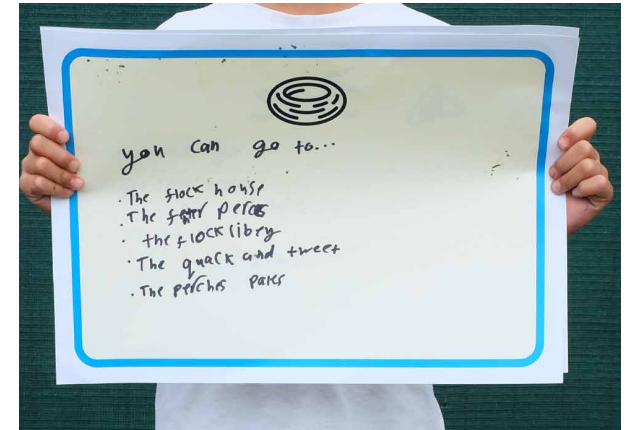 you can go to...
. The flock house
. The peros
. the flock libey
. The quack and tweet
. The perches parks